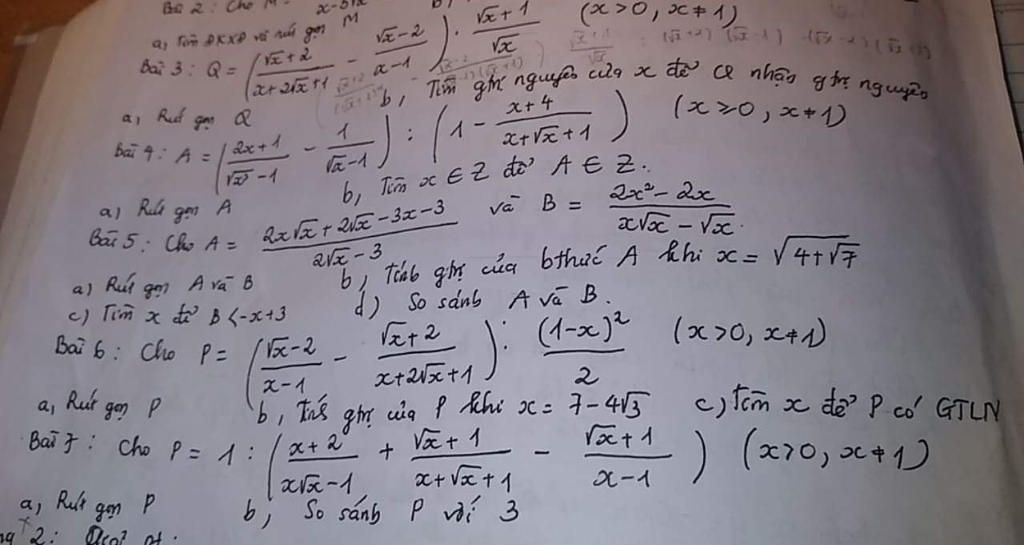 Bài 2: Cho M =
a, Tìm ĐKXĐ và rút gọn M
Bài 3: Q = ( (√x + 2)/(x + 2√x + 1) − (√x − 2)/(x − 1) ) . (√x + 1)/√x (x > 0, x ≠ 1)
a, Rút gọn Q b, Tìm gtrị nguyên của x để Q nhận gtrị nguyên
Bài 4: A = ( (2x + 1)/(√x³ − 1) − 1/(√x − 1) ) : ( 1 − (x + 4)/(x + √x + 1) ) (x ≥ 0, x ≠ 1)
a, Rút gọn A b, Tìm x ∈ Z để A ∈ Z.
Bài 5: Cho A = (2x√x + 2√x − 3x − 3)/(2√x − 3) và B = (2x² − 2x)/(x√x − √x).
a) Rút gọn A và B b, Tính gtrị của bthức A khi x = √(4 + √7)
c) Tìm x để B < −x + 3 d) So sánh A và B.
Bài 6: Cho P = ( (√x − 2)/(x − 1) − (√x + 2)/(x + 2√x + 1) ) : (1 − x)²/2 (x > 0, x ≠ 1)
a, Rút gọn P b, Tính gtrị của P khi x = 7 − 4√3 c, Tìm x để P có GTLN
Bài 7: Cho P = 1 : ( (x + 2)/(x√x − 1) + (√x + 1)/(x + √x + 1) − (√x + 1)/(x − 1) ) (x > 0, x ≠ 1)
a, Rút gọn P b, So sánh P với 3